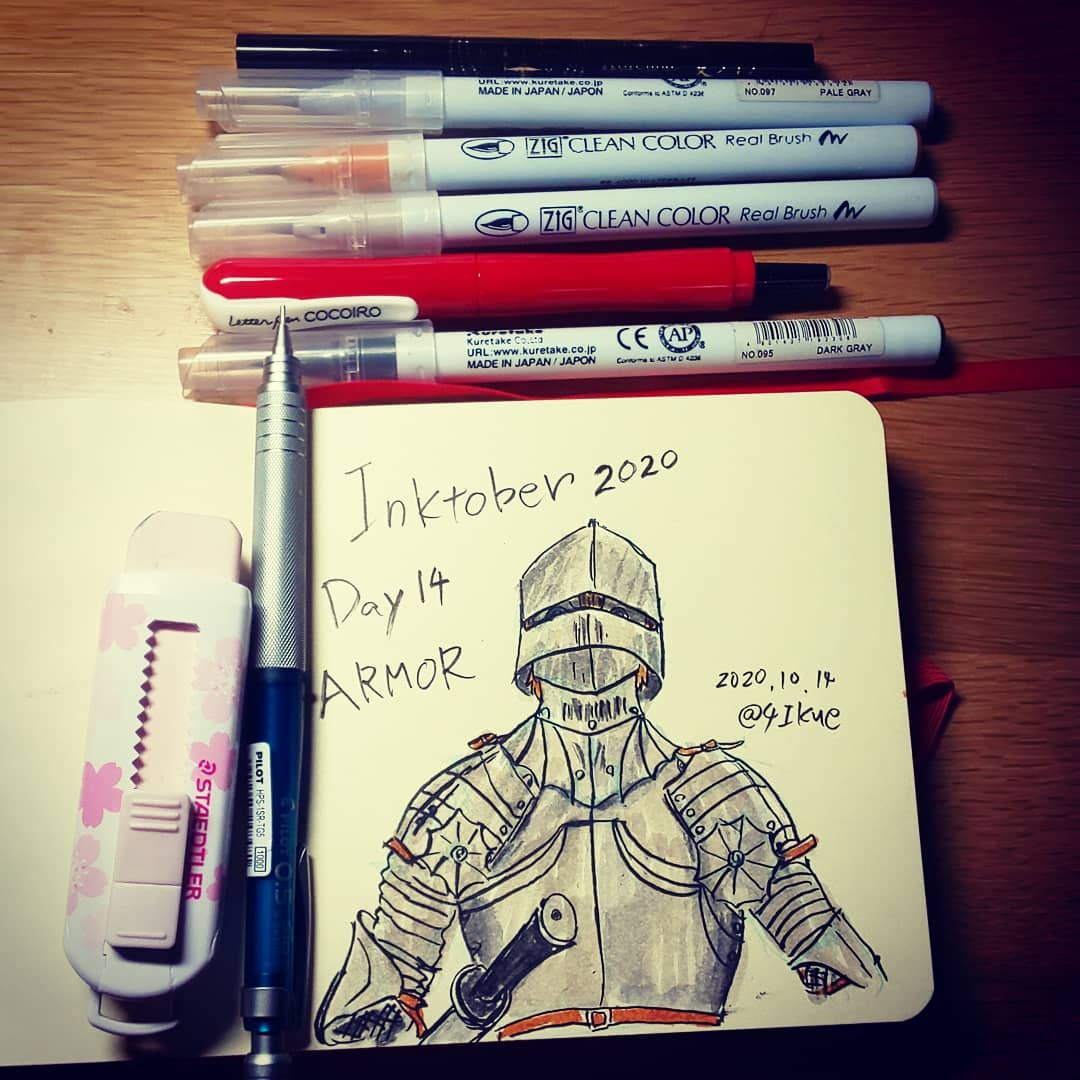 URL:www.kuretake.co.jp
MADE IN JAPAN / JAPON
Conforms to ASTM D 4236
NO.097 PALE GRAY
ZIG® CLEAN COLOR Real Brush
ZIG® CLEAN COLOR Real Brush
Letter pen COCOIRO
Kuretake
Kuretake Co.,Ltd.
URL:www.kuretake.co.jp
MADE IN JAPAN / JAPON
CE AP
Conforms to ASTM D 4236
NO.095 DARK GRAY
Inktober 2020
Day 14
ARMOR
2020.10.14
@4Ikue
STAEDTLER
PILOT HPS-1SR-TG5 1000
PILOT 0.5